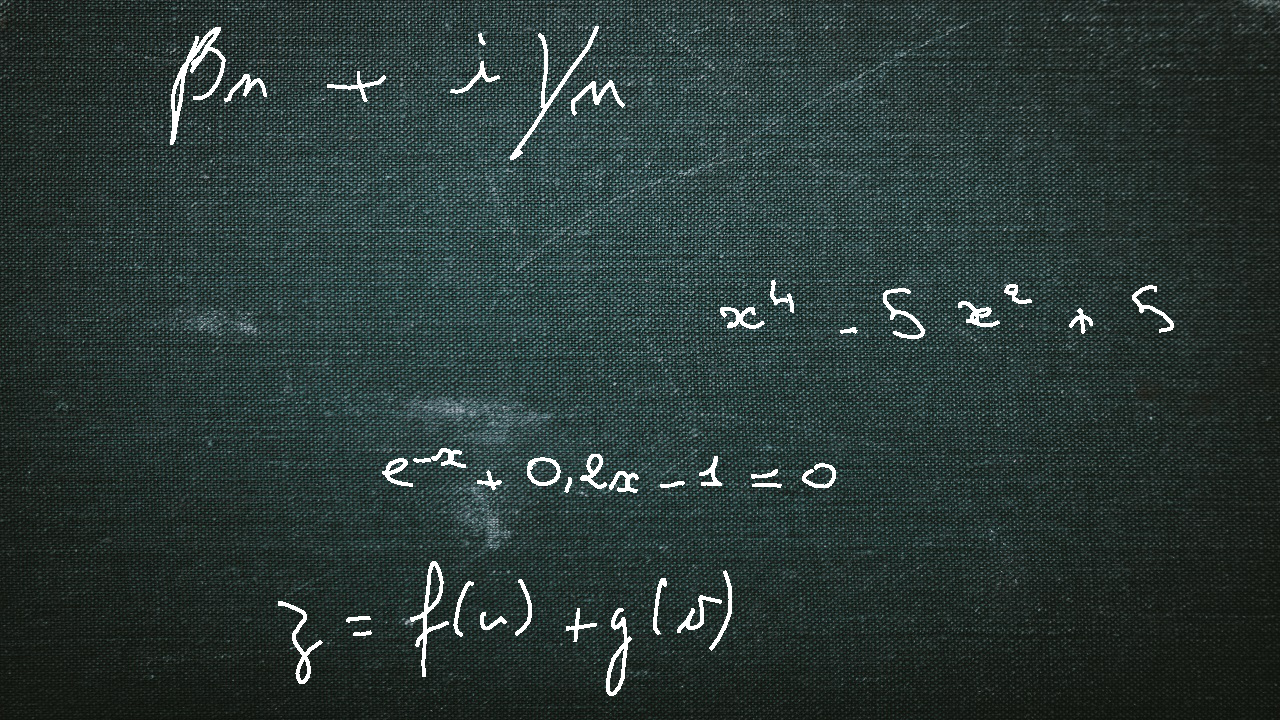 βn + i γn
x⁴ - 5x² + 5
e⁻ˣ + 0,2x - 1 = 0
z = f(u) + g(v)